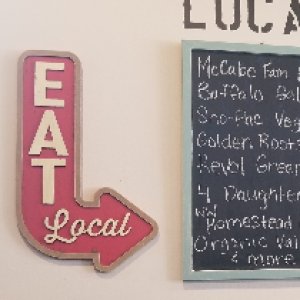 LOCA
EAT
Local
McCabe Fam
Buffalo Gal
Sno-Pac Veg
Golden Roots
Revol Green
4 Daughter
WW Homestead
Organic Val
& more